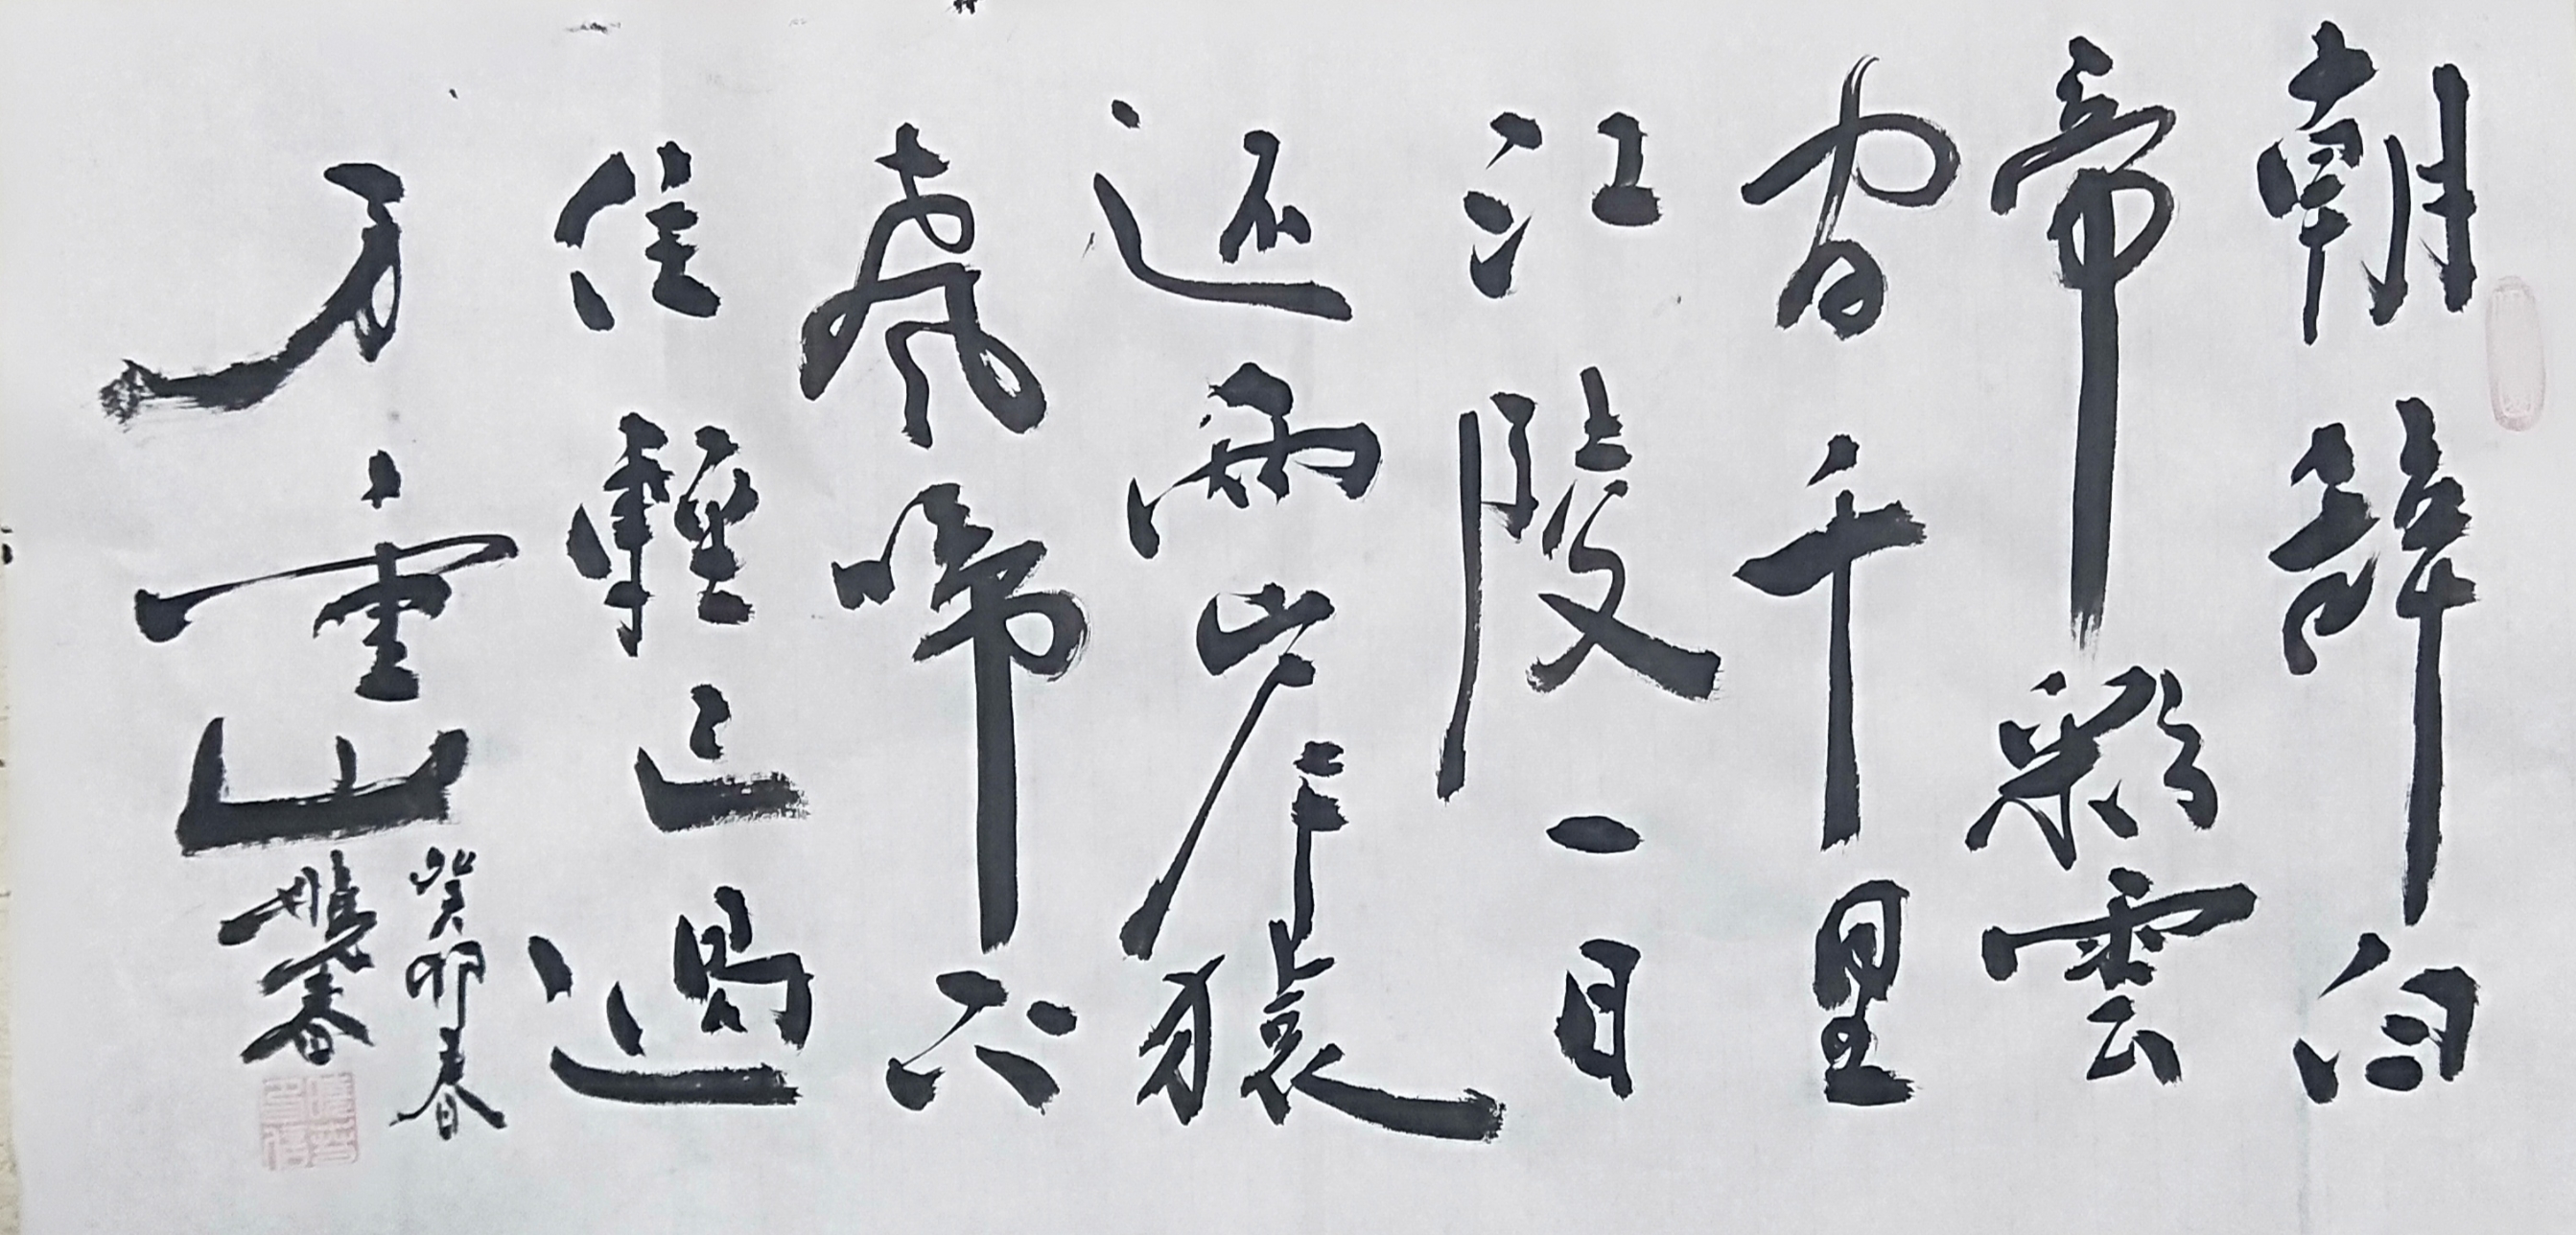 朝辭白
帝彩雲
間千里
江陵一日
还兩岸猿
聲啼不
住輕已過
万重山
癸卯春
曉春